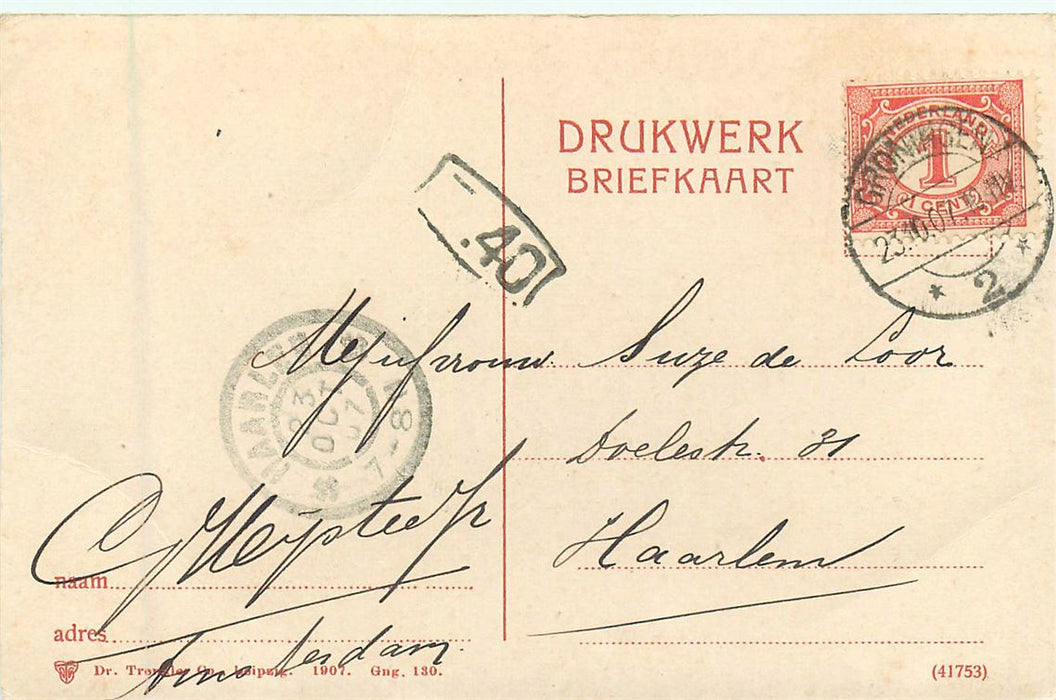 DRUKWERK
BRIEFKAART
NEDERLAND
1
1 CENT
GRONINGEN
23.10.07. 12
2
.40
HAARLEM
23 OCT 07
7-8
Mejufvrouw Suze de Loor
Doelestr. 31
Haarlem
naam
adres
Amsterdam
Dr. Trenkler Co., Leipzig. 1907. Gng. 130.
(41753)